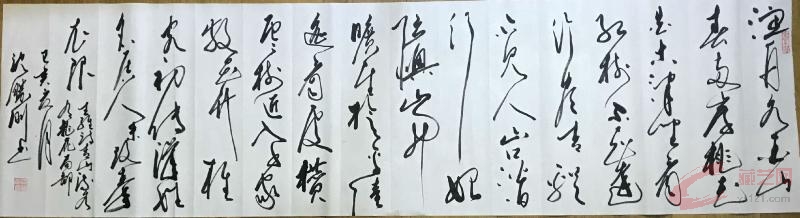 渔舟逐水爱山
春两岸桃花
夹古津坐看
红树不知远
行尽青溪
不见人山口潜
行始
隈隩山开
旷望旋平陆
遥看一处攒
云树近入千家
散花竹樵
客初传汉姓
名居人未改秦
衣服
己亥六月